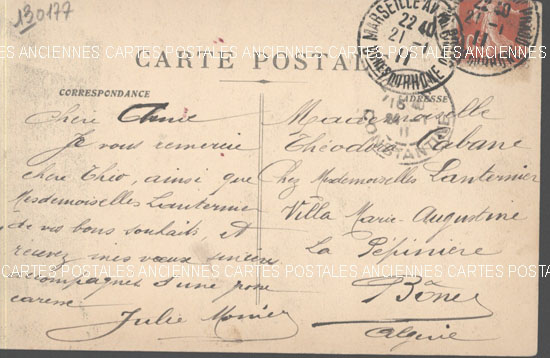 130177
MARSEILLE
22 40
21
11
BOUCHES DU RHONE
22 40
11
CARTE POSTALE
CORRESPONDANCE
ADRESSE
CONSTANTINE
11
Chère Amie
Je vous remercie
chère Theo, ainsi que
Mesdemoiselles Lanternier
de vos bons souhaits et
recevez mes vœux sincères
accompagnés d'une
caresse.
Julie
Mademoiselle
Théodora Cabane
Chez Mesdemoiselles Lanternier
Villa Marie-Augustine
La Pépinière
Bône
Algérie
ANCIENNES CARTES POSTALES ANCIENNES CARTES POSTALES ANCIENNES CARTES
CARTES POSTALES ANCIENNES CARTES POSTALES ANCIENNES CARTES POSTALES